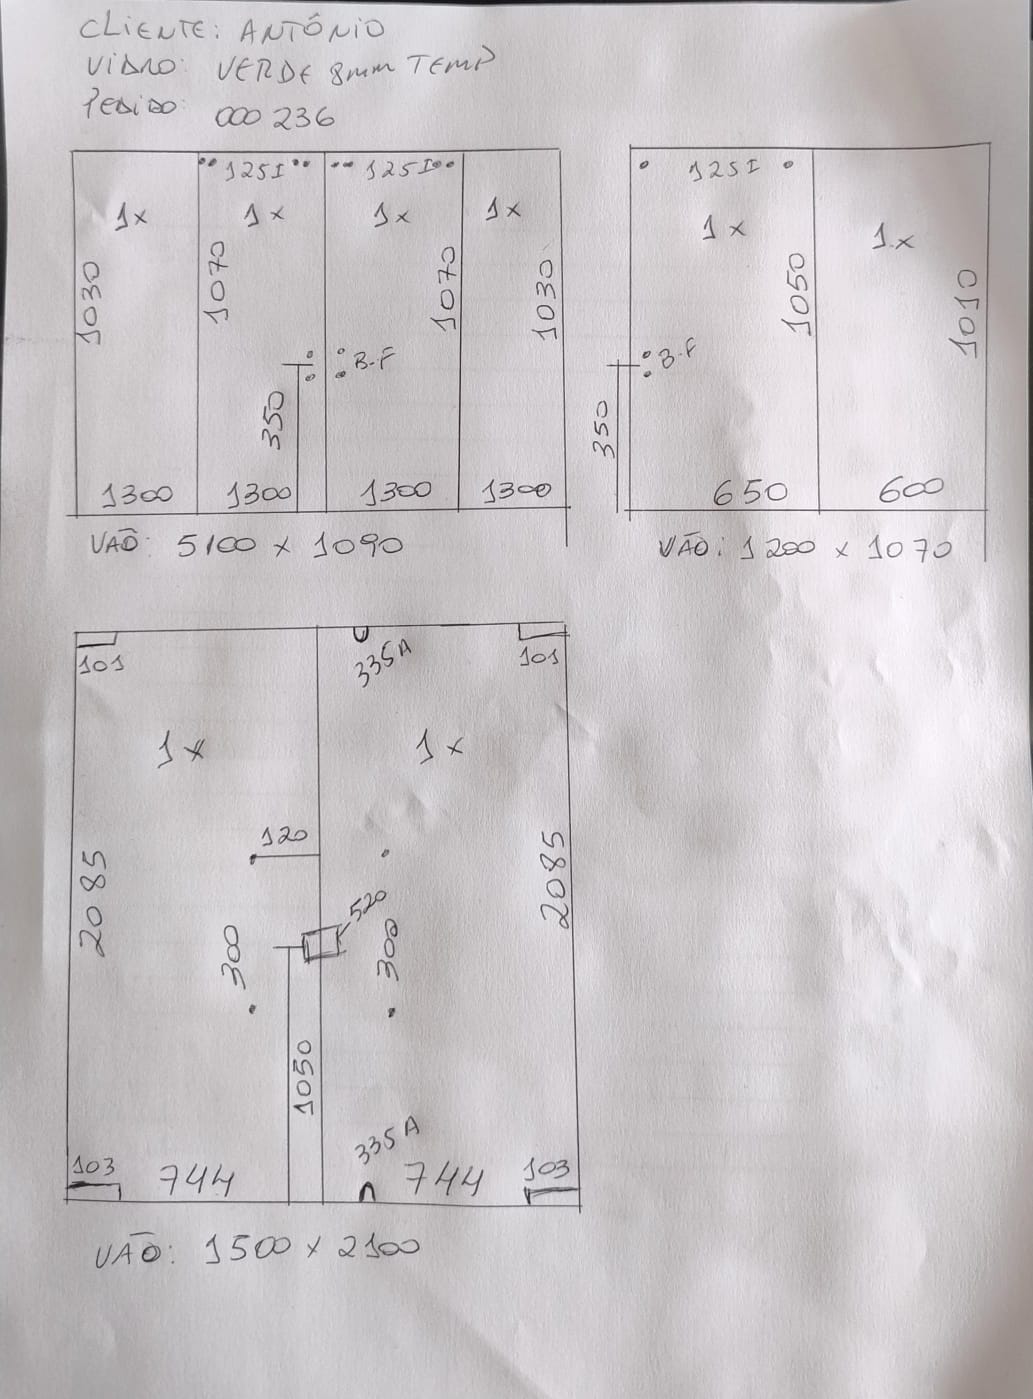 CLIENTE: ANTÔNIO
VIDRO: VERDE 8mm TEMP
PEDIDO: 000 236
125I 125I
1x 1x 1x 1x
1030 1070 1070 1030
B-F
350
1300 1300 1300 1300
VÃO: 5100 x 1090
125I
1x 1x
1050 1010
B-F
350
650 600
VÃO: 1200 x 1070
101 335A 101
1x 1x
120
2085 2085
520
300 300
1050
335A
103 744 744 103
VÃO: 1500 x 2100